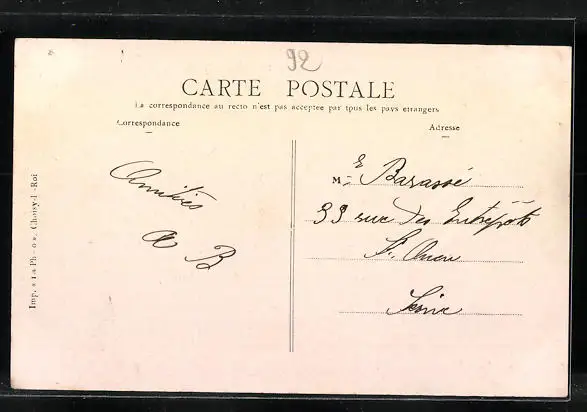 92
CARTE POSTALE
La correspondance au recto n'est pas acceptée par tous les pays étrangers
Correspondance
Adresse
Amitiés
B
M e Barassé
33 rue des Entrepôts
St Ouen
Seine
Choisy-l-Roi